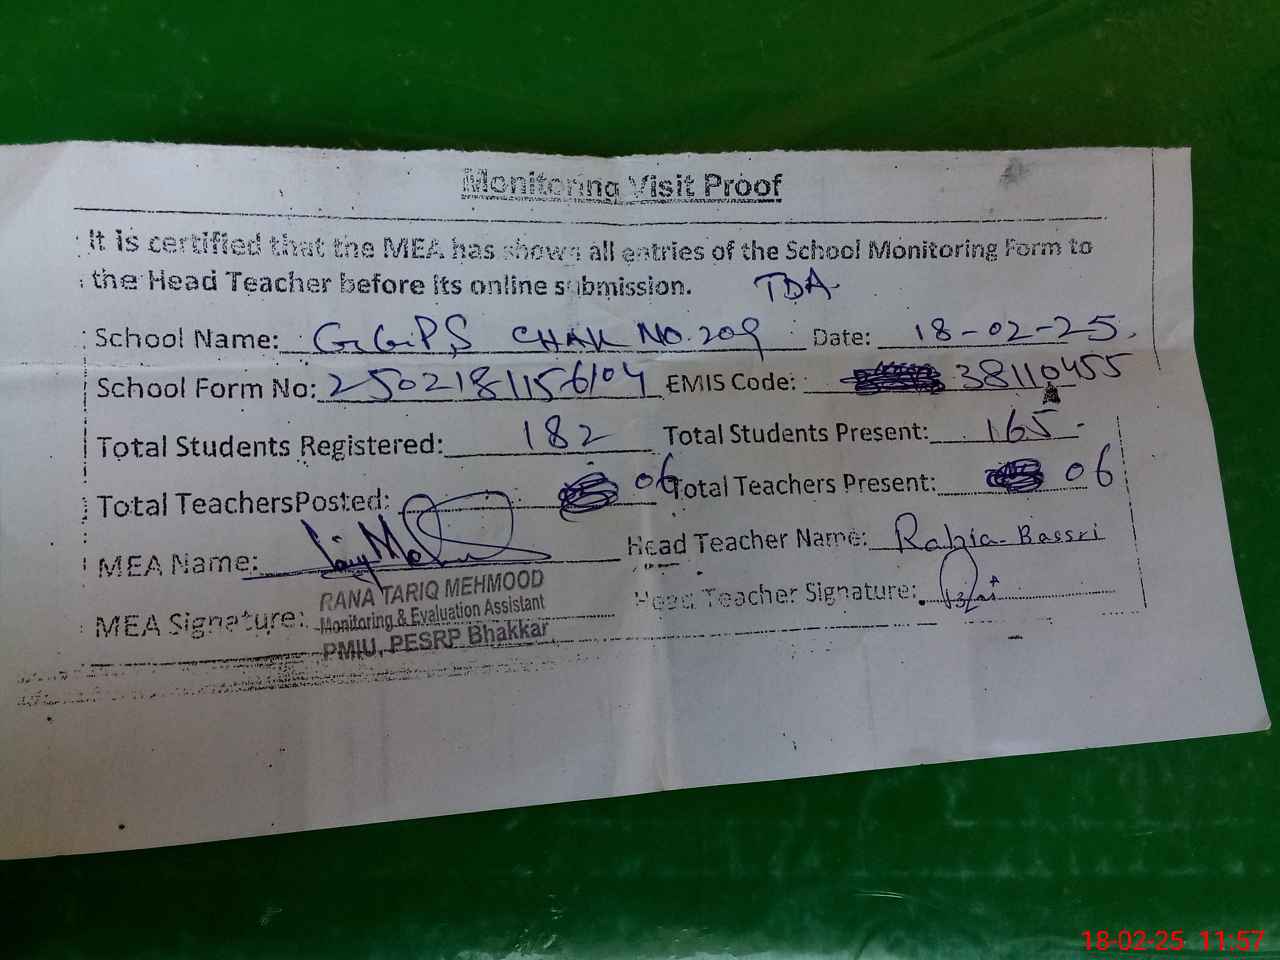 Monitoring Visit Proof
It is certified that the MEA has shown all entries of the School Monitoring Form to
the Head Teacher before its online submission. TDA
School Name: G.G.P.S CHAK NO. 209 Date: 18-02-25.
School Form No: 2502181156104 EMIS Code: 38110455
Total Students Registered: 182 Total Students Present: 165
Total TeachersPosted: 06 Total Teachers Present: 06
MEA Name: Head Teacher Name: Rabia Bassri
RANA TARIQ MEHMOOD
MEA Signature: Monitoring & Evaluation Assistant Head Teacher Signature:
PMIU, PESRP Bhakkar
18-02-25 11:57